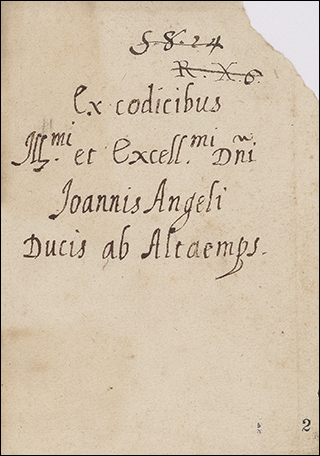 S.8.24
R. X. 6.
Ex codicibus
Ill.mi et Excell.mi Dñi
Joannis Angeli
Ducis ab Altaemps.
2